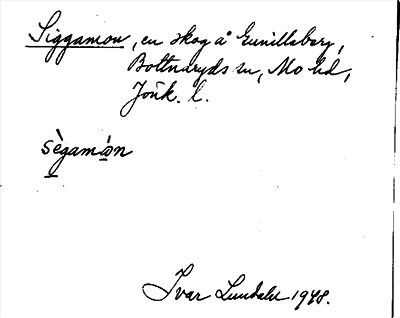 Siggamon, en skog å Gunillaberg,
Bottnaryds sn, Mo hd,
Jönk. l.
sègamòn
Ivar Lundahl 1948.